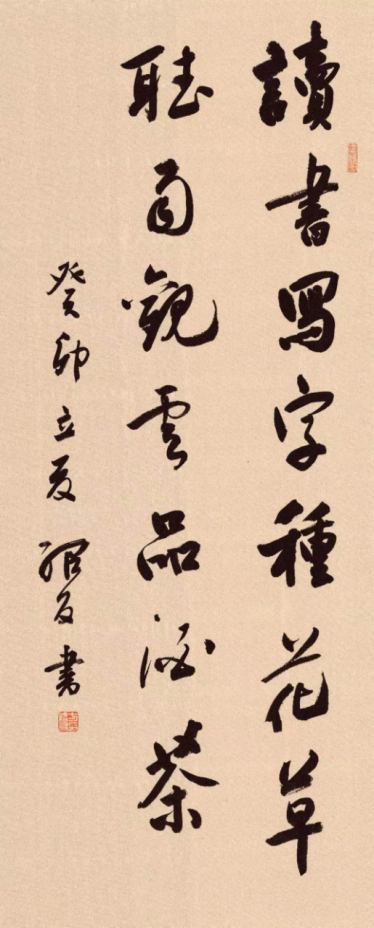 讀書寫字種花草
聽雨觀雲品酒茶
癸卯立夏 書